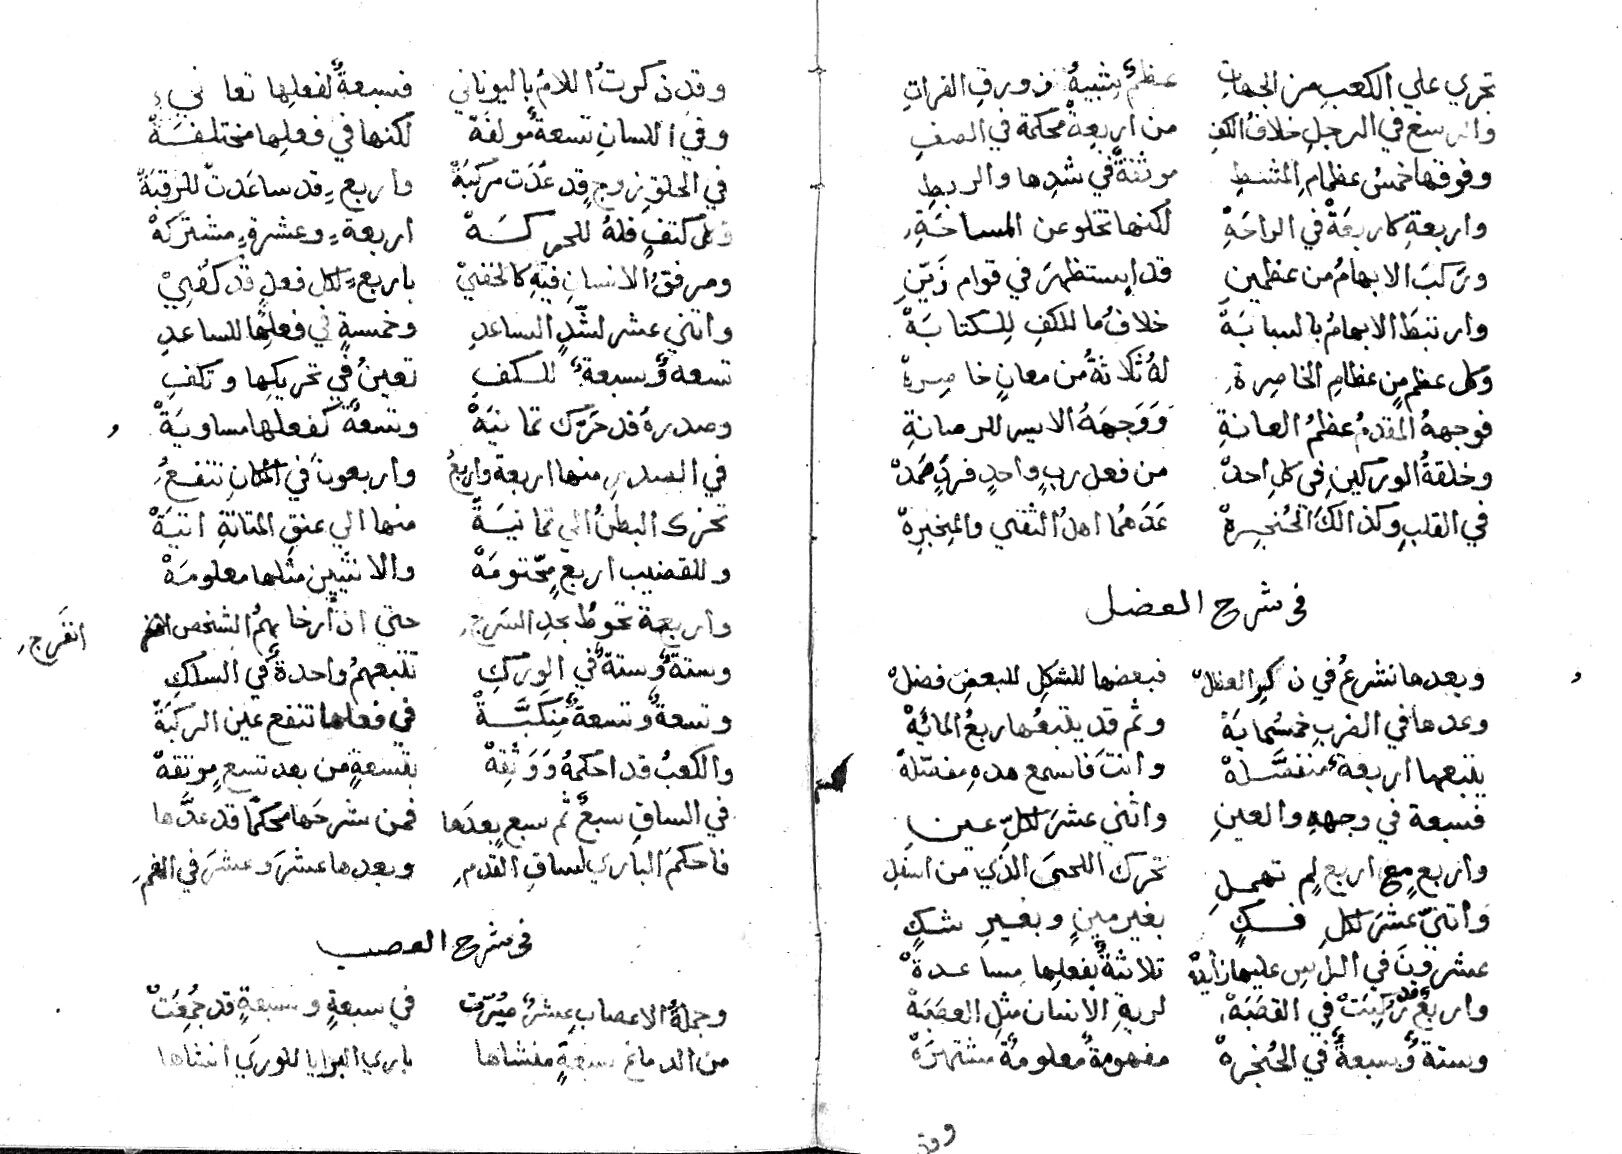 تجري علي الكعب من الجهات عظم يشبه زورق الفرات
والرسغ في الرجل خلاف الكف من اربعة محكمة في الصف
وفوقها خمس عظام المشط موثقة في شدها والربط
واربعة كاربعة في الراحة لكنها تخلو عن المساحة
وتركب الابهام من عظمين قد استظهر في قوام زين
وارتبط الابهام بالسبابة خلاف ما للكف للكتابة
وكل عظم من عظام الخاصرة له ثلاثة من معان خاصرة
فوجهه المقدم عظم العانة ووجهه الايسر للرصانة
وخلقة الوركين في كل احد من فعل رب واحد فرد صمد
في القلب وكذالك الحنجرة عدهما اهل التقي والمخبرة
في شرح العضل
وبعدها نشرع في ذكر العظل فبعضها للشكل للبعض فضل
وعدها في الضرب خمسماية وثم قد يتبعها ربع المائية
يتبعها اربعة منفصلة وانت فاسمع هده مفصلة
فسبعة في وجهه والعين واثني عشر لكل عين
واربع مع اربع لم تهمل تحرك اللحي الذي من اسفل
واثني عشر لكل فك بغير مين وبغير شك
عشرون في الراس عليها زايدة ثلاثة بفعلها مساعدة
واربع قد ركبت في القصبة لرية الانسان مثل العصبة
وستة وسبعة في الحنجرة مفهومة معلومة مشتهرة
وقد
وقد ذكرت اللام باليوناني فسبعة لفعلها تعاني
وفي اللسان تسعة مولفة لكنها في فعلها مختلفة
في الحلق زوج قد عدت مركبة واربع قد ساعدت للرقبة
وكل كتف فله للحركة اربعة وعشرة مشتركة
ومرفق الانسان فيه كالخفي باربع لكل فعل قد كفي
واثني عشر لشد الساعد وخمسة في فعلها للساعد
تسعة وسبعة للكف تعين في تحريكها وتكف
وصدره قد حرك ثمانية وتسعة كفعلها مساوية
في الصدر منها اربعة واربع واربعون في المكان تنفع
تحرك البطن الي ثمانية منها الي عنق المثانة اتية
وللقضيب اربع محتومة والانثيين مثلها معلومة
واربعة تحوط بحد الشرج حتي اذا ارخا بهم الشخص انفرج
وستة وستة في الورك تتبعهم واحدة في السلك
وتسعة وتسعة منكبة في فعلها تنفع عين الركبة
والكعب قد احكمه ووثقه بتسعة من بعد تسع موثقة
في الساق سبع ثم سبع بعدها فمن شرحها محكما قد عدها
فاحكم الباري لساق القدم وبعدها عشر وعشر في الفم
في شرح العصب
وجملة الاعصاب عشر ميزت في سبعة وسبعة قد جمعت
من الدماغ سبعة منشاها باري البرايا للوري انشاها